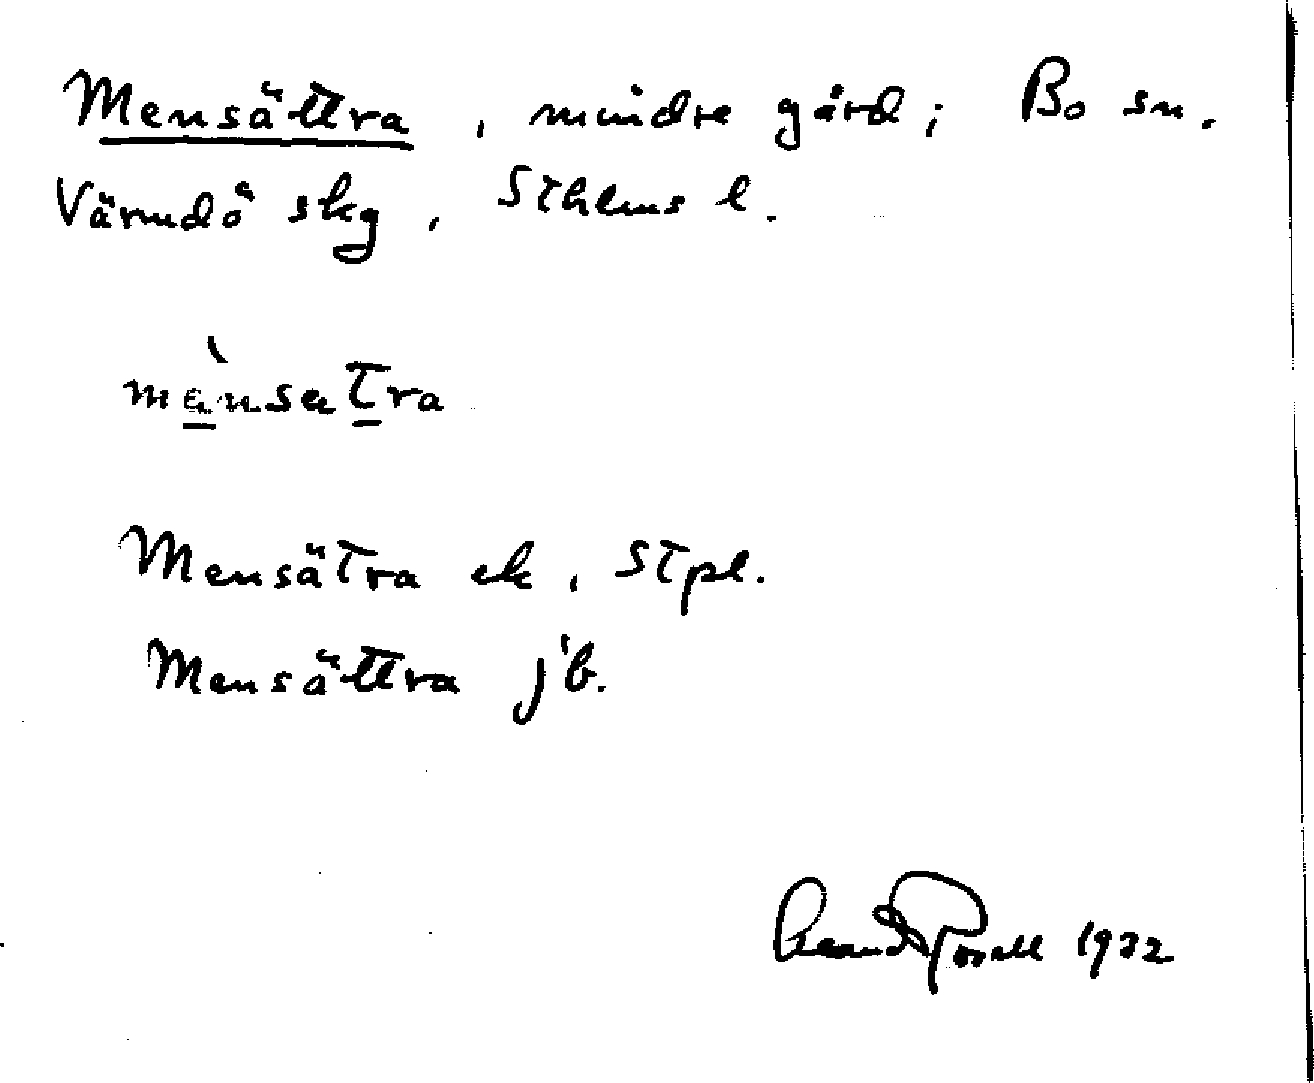 Mensättra, mindre gård; Bo sn.
Värmdö skg, Sthlms l.
mènsatra
Mensätra ek, Stpl.
Mensättra jb.
1932